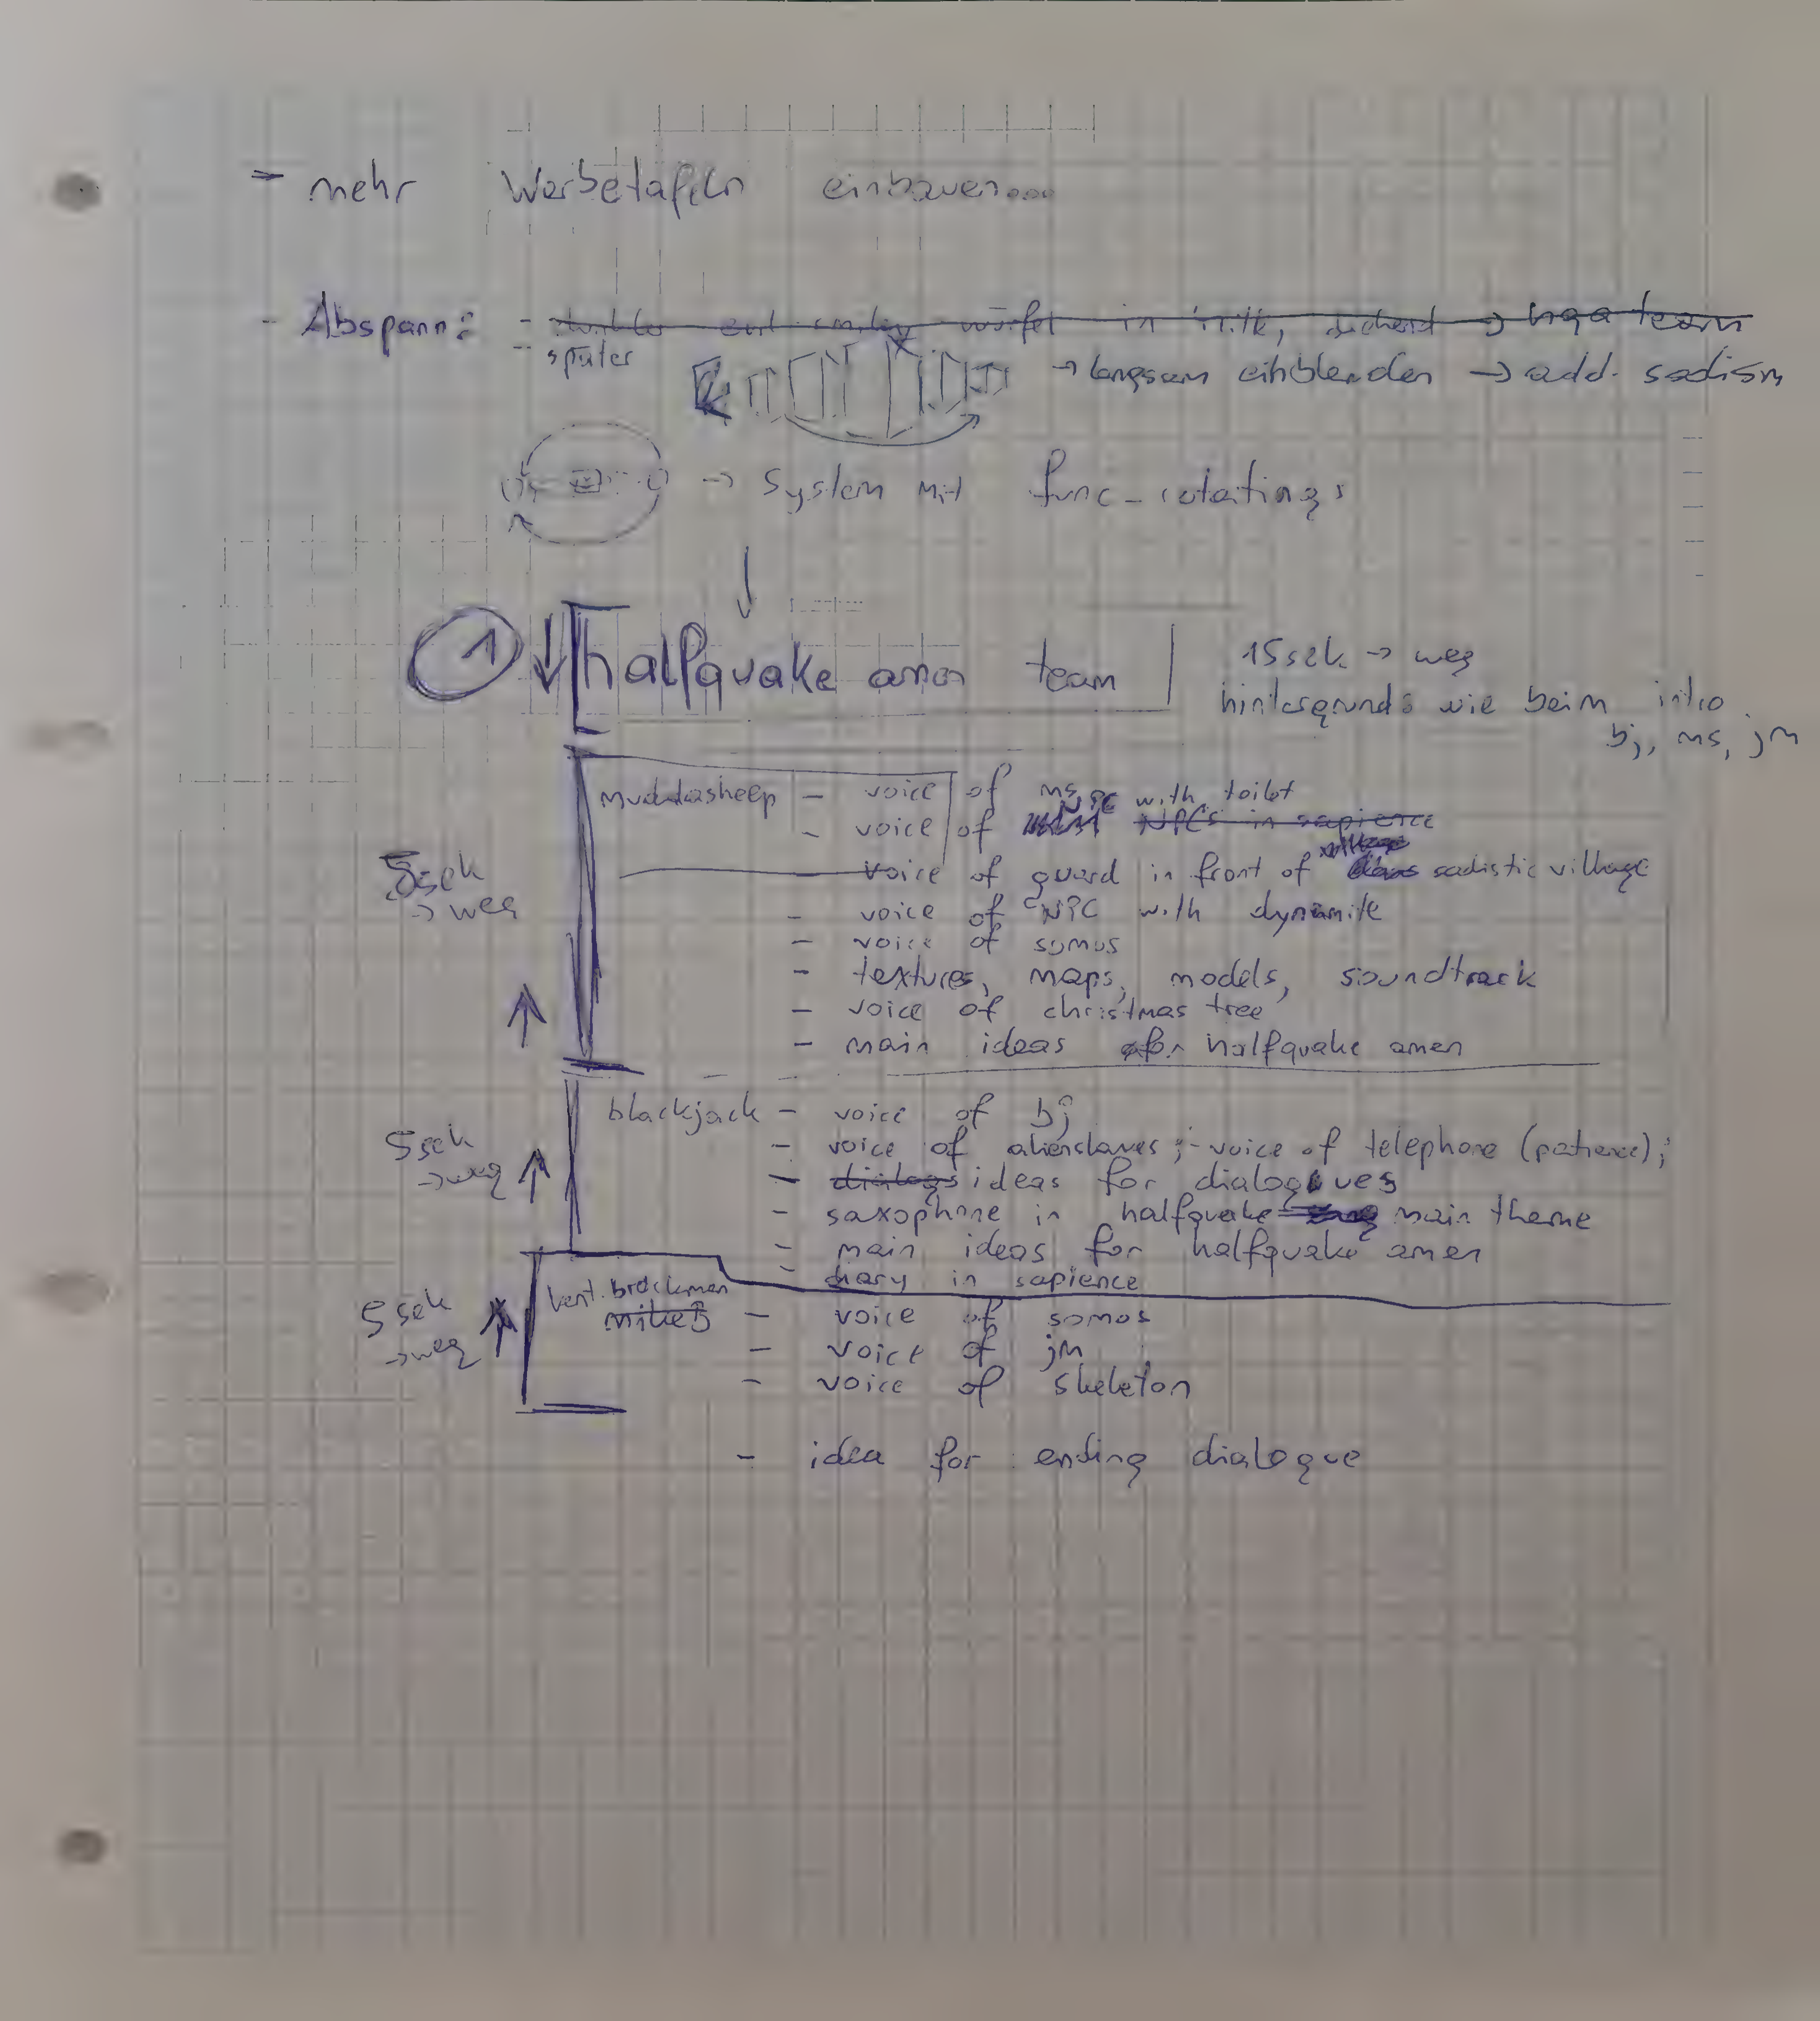 - mehr Werbetafeln einbauen....
- Abspann: - würfel in mitte, → hqa team
- später → langsam einblenden → add. sadism
→ System mit func_rotatings
1 ↓ halfquake amen team
15sek → weg
hintergrund: wie beim intro
bj, ms, jm
muddasheep - voice of ms
- voice of NPC with toilet NPCs in sapience
- voice of guard in front of sadistic village
5sek → weg
- voice of NPC with dynamite
- voice of somos
- textures, maps, models, soundtrack
- voice of christmas tree
- main ideas for halfquake amen
blackjack - voice of bj
- voice of alienslaves; - voice of telephone (patience);
5sek → weg
- dialogs ideas for dialogues
- saxophone in halfquake main theme
- main ideas for halfquake amen
- diary in sapience
kent brockman
5sek → weg
- voice of somos
- voice of jm
- voice of skeleton
- idea for ending dialogue